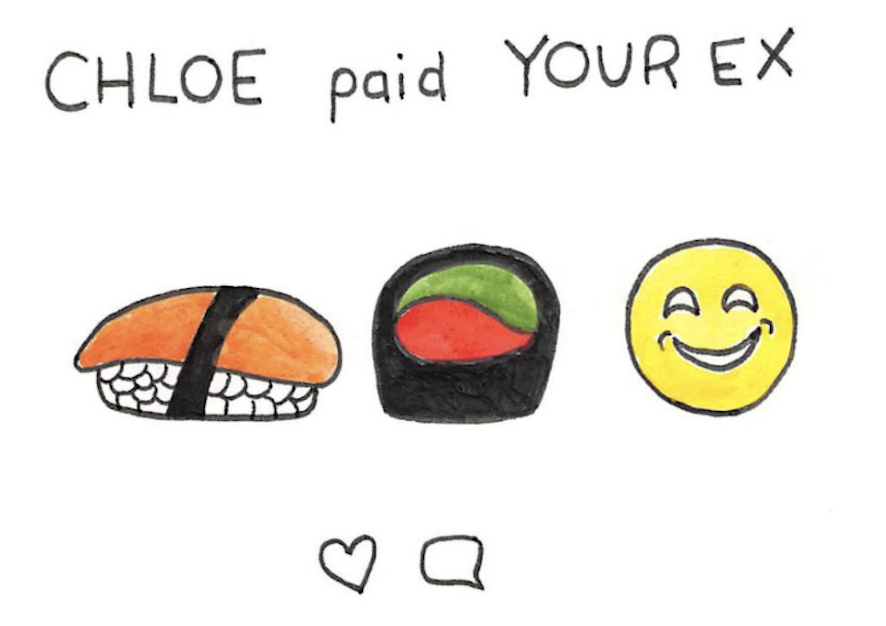 CHLOE paid YOUR EX